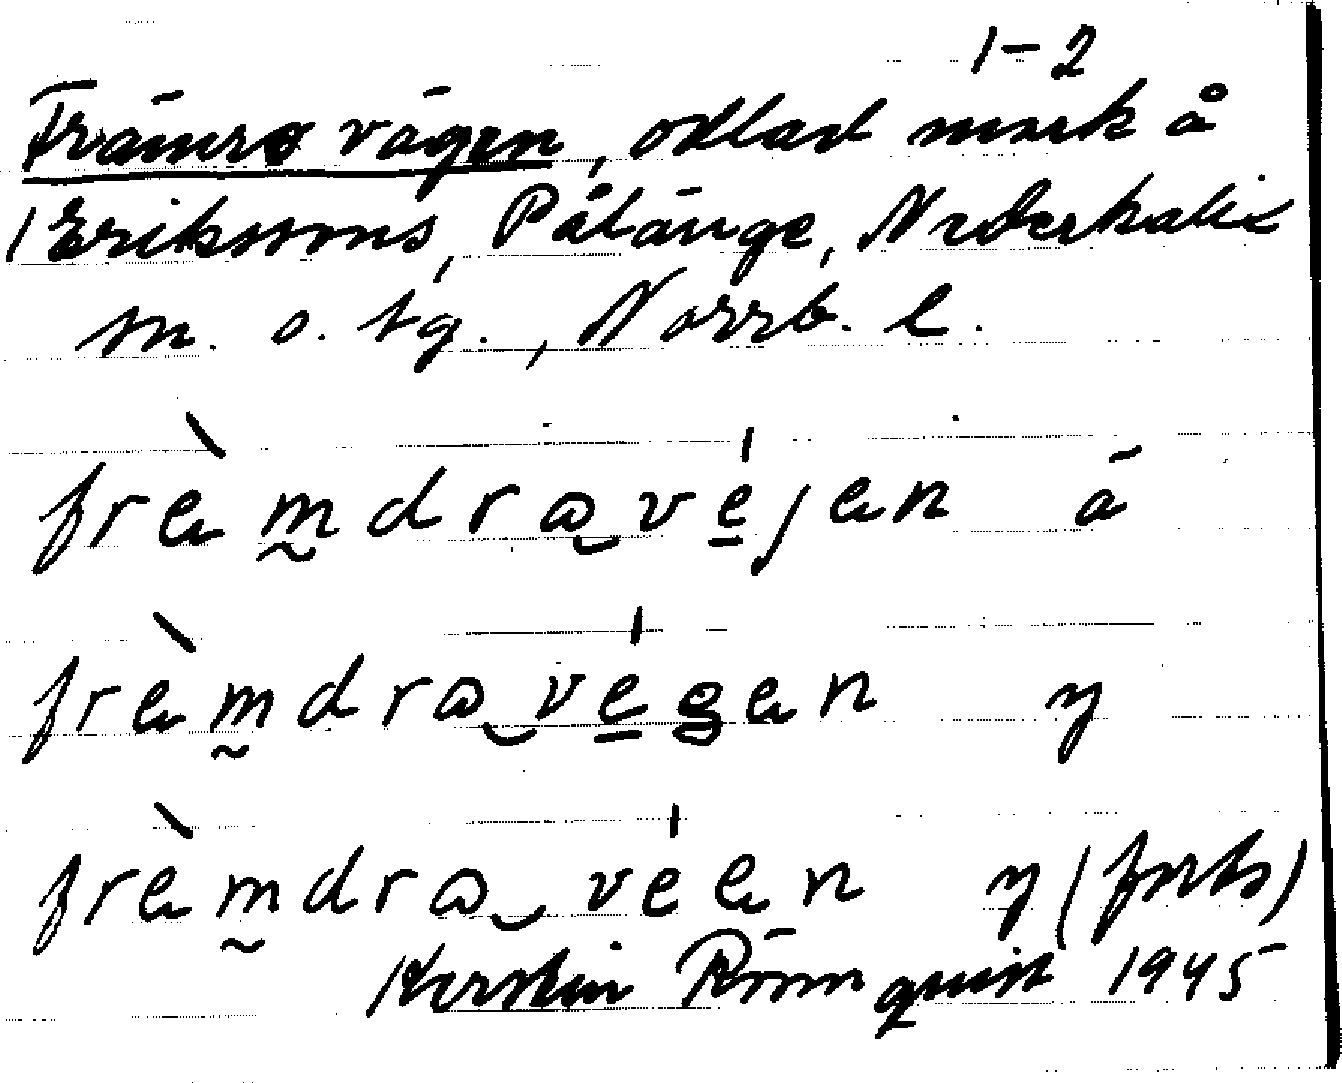 1-2
Främre vägen, odlad mark å
1 Erikssons, Pålänge, Nederkalix
sn. o. tg., Norrb. l.
frèmdravéjen ä
frèmdravégen y
frèmdra véen y (forts)
Kerstin Rönnquist 1945